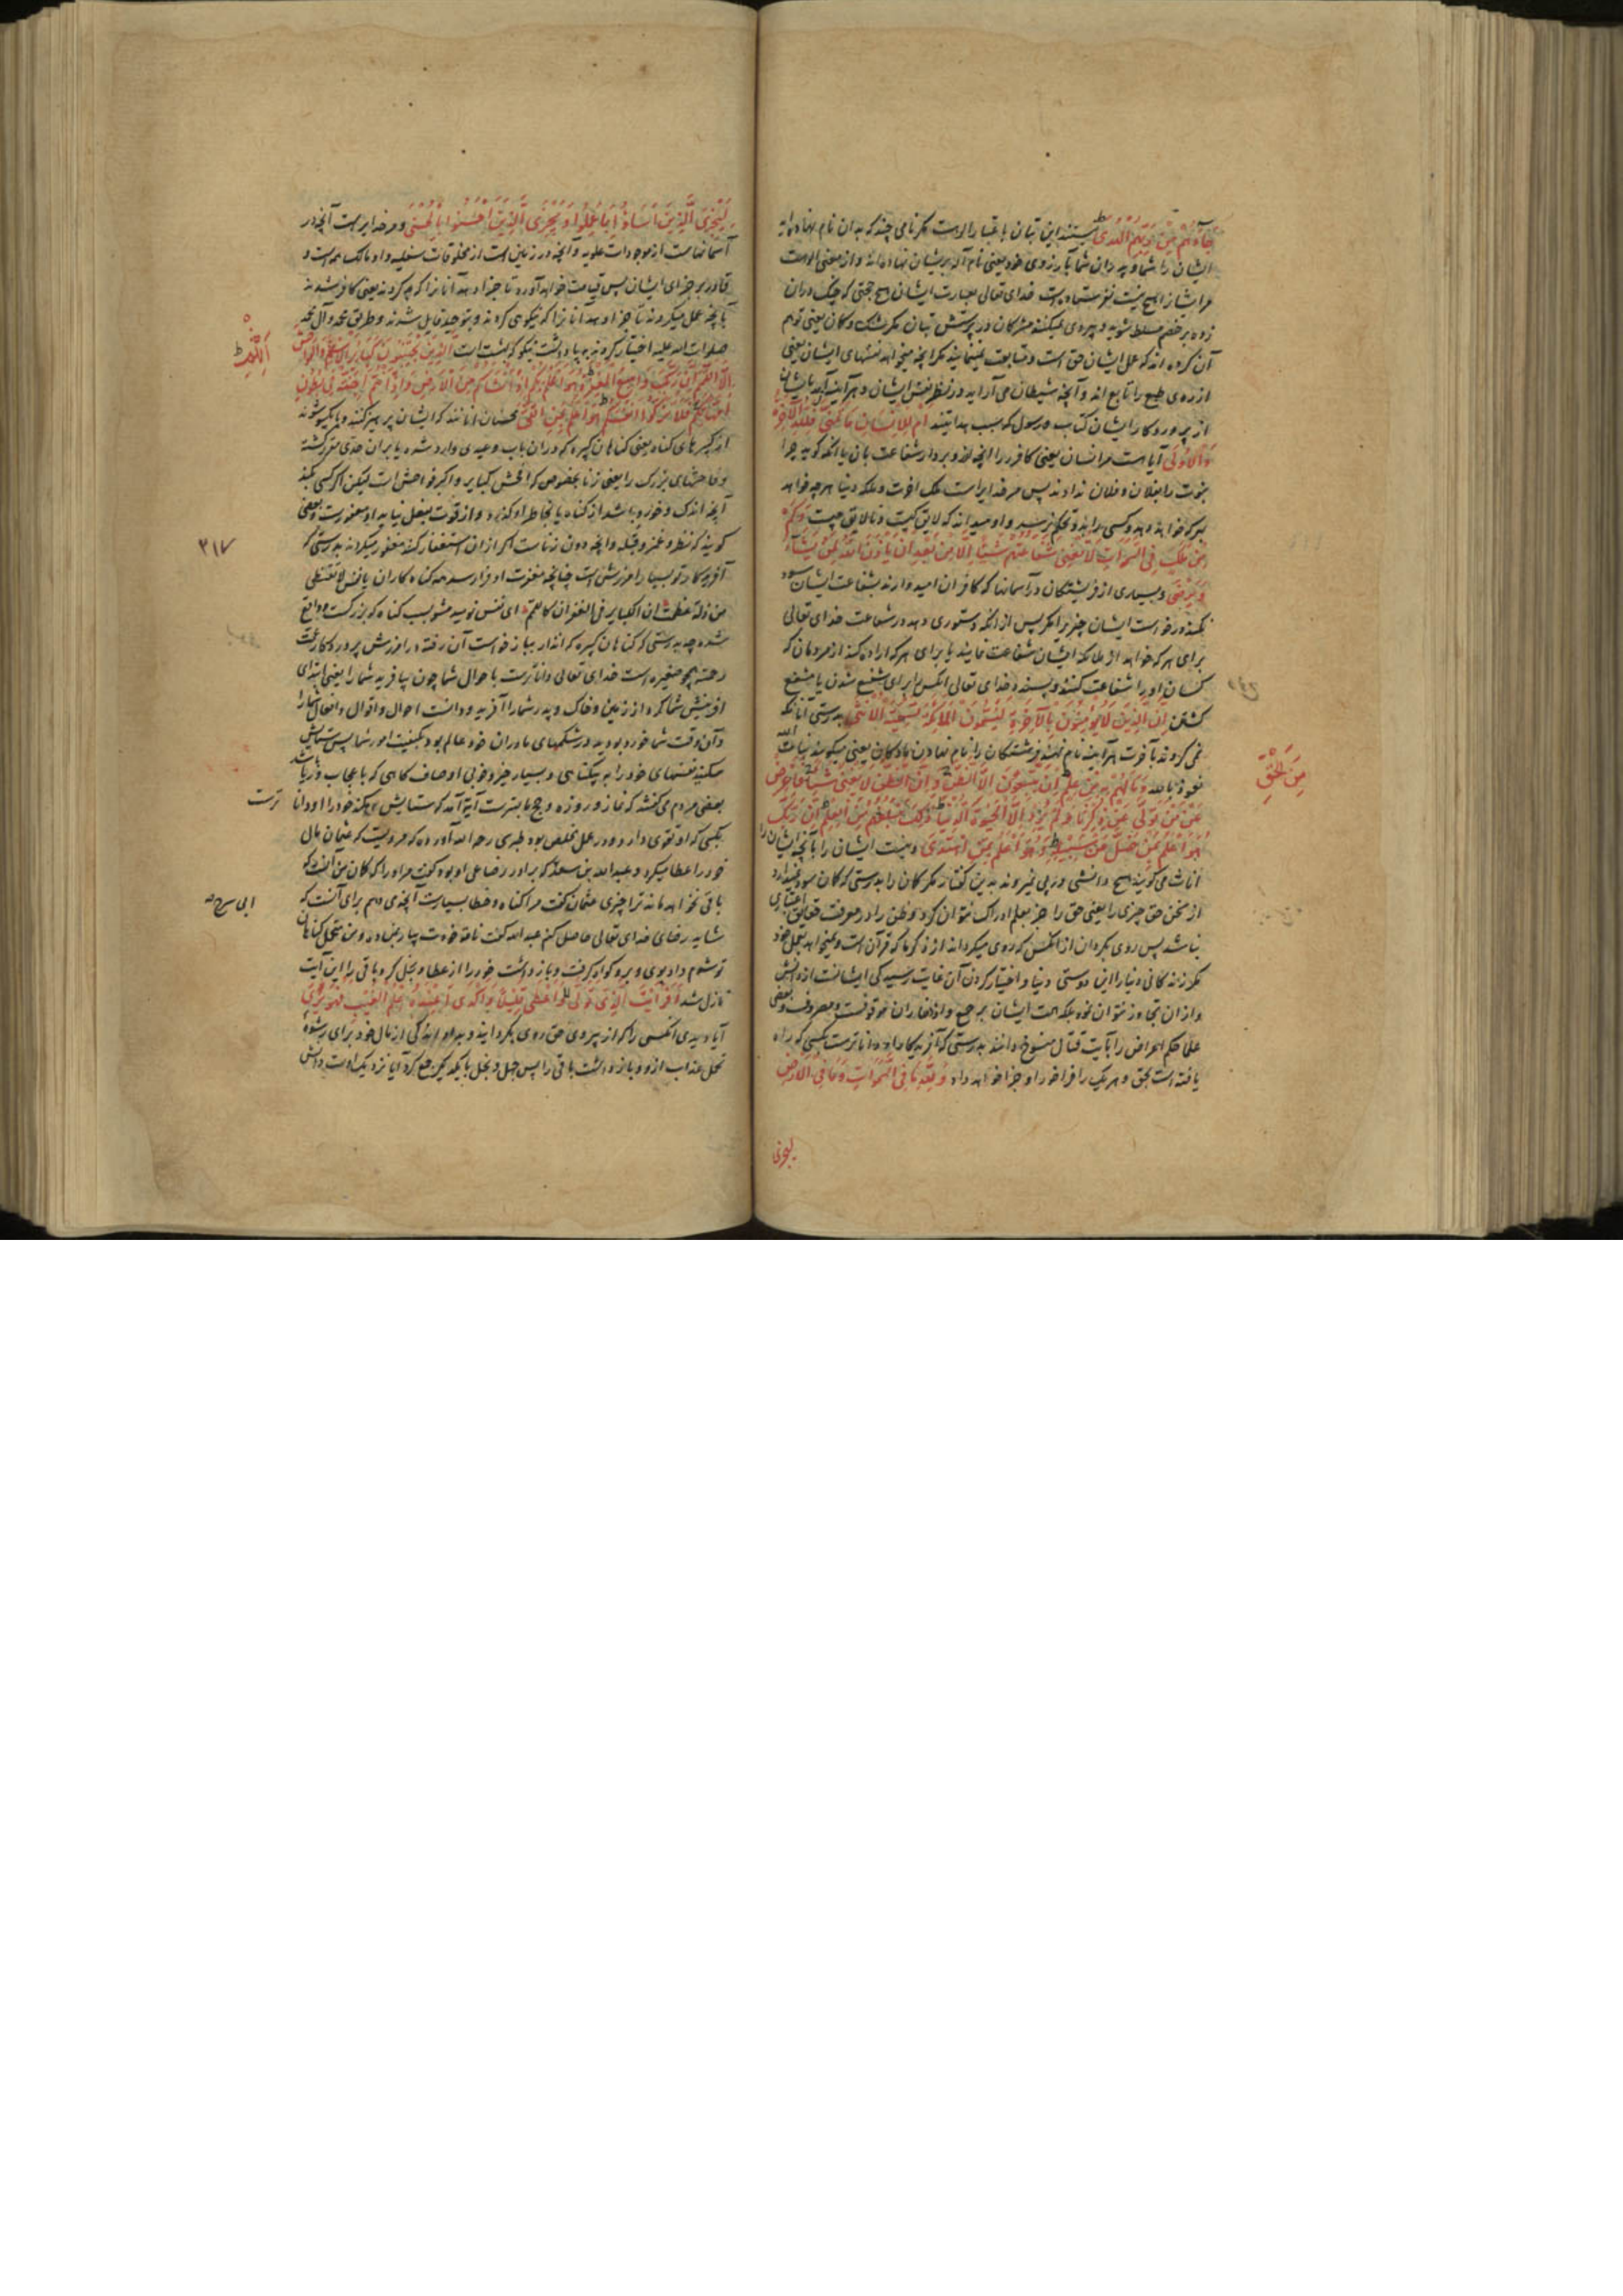 جَاءَهُمْ مِنْ رَبِّهِمُ الْهُدَى نیستند این بتان باعتبار الوهیت مگر نامی چند که بدان نام نهاده‌اید
ایشان را شما و پدران شما بآرزوی خود یعنی نام آلهه بریشان نهاده‌اند و از معنی الوهیت
مر ایشانرا هیچ نیست نفرستاده است خدای تعالی بعبادت ایشان هیچ حجتی که چنگ دران
زده بر خصم مسلط شوند و پیروی نمیکنند مشرکان در پرستش بتان مگر شک و گمان یعنی توهم
آن کرده اند که عمل ایشان حق است و متابعت نمینمایند مگر آنچه میخواهد نفسهای ایشان یعنی
از ره‌ی طبع را تابع اند و آنچه شیطان می آراید در نظر نفس ایشان و هر آینه آمد بایشان
از پروردگار ایشان کتاب و رسول که سبب هدایتند أَمْ لِلْإِنْسَانِ مَا تَمَنَّى فَلِلَّهِ الْآخِرَةُ
وَالْأُولَى آیا هست مر انسان یعنی کافر را آنچه آرزو برد از شفاعت بتان یا آنکه گوید چرا
نبوت را بفلان و فلان ندادند پس مر خدایراست ملک آخرت و ملک دنیا هر چه خواهد
بهر که خواهد دهد و کسی را بدو تحکم نرسد و او میداند که لایق کیست و نالایق چیست وَكَمْ
مِنْ مَلَكٍ فِي السَّمَوَاتِ لَا تُغْنِي شَفَاعَتُهُمْ شَيْئًا إِلَّا مِنْ بَعْدِ أَنْ يَأْذَنَ اللَّهُ لِمَنْ يَشَاءُ
وَيَرْضَى و بسیاری از فریشتگان در آسمانها که کافران امید دارند بشفاعت ایشان سود
نکند درخواست ایشان چیزی را مگر پس از آنکه دستوری دهد در شفاعت خدای تعالی
برای هر که خواهد از ملائکه ایشان شفاعت نمایند یا برای هر که اراده کند از مردمان که
کسان او را شفاعت کنند و پسندد خدای تعالی آنکس را برای شفیع شدن یا مشفع
گشتن إِنَّ الَّذِينَ لَا يُؤْمِنُونَ بِالْآخِرَةِ لَيُسَمُّونَ الْمَلَائِكَةَ تَسْمِيَةَ الْأُنْثَى بدرستی آنانکه
نمی گروند بآخرت هر آینه نام نهند فرشتگان را نام نهادن مادگان یعنی میگویند بنات الله
نعوذ بالله وَمَا لَهُمْ بِهِ مِنْ عِلْمٍ إِنْ يَتَّبِعُونَ إِلَّا الظَّنَّ وَإِنَّ الظَّنَّ لَا يُغْنِي شَيْئًا فَأَعْرِضْ
مِنَ الْحَقِّ
عَنْ مَنْ تَوَلَّى عَنْ ذِكْرِنَا وَلَمْ يُرِدْ إِلَّا الْحَيَوةَ الدُّنْيَا ذَلِكَ مَبْلَغُهُمْ مِنَ الْعِلْمِ إِنَّ رَبَّكَ
هُوَ أَعْلَمُ بِمَنْ ضَلَّ عَنْ سَبِيلِهِ وَهُوَ أَعْلَمُ بِمَنِ اهْتَدَى و نیست ایشان را بآنچه ایشان را
اناث می گویند هیچ دانشی و پی نمیروند بدین گفتار مگر گمان را بدرستی که گمان سود ندارد
از سخن حق چیزی را یعنی حق را جز بعلم ادراک نتوان کرد و ظن را در معرفت حقایق اعتباری
نباشد پس روی بگردان از آنکس که روی میگرداند از ذکر ما که قرآن است و نمیخواهد بعمل خود
مگر زندگانی دنیا را این دوستی دنیا و اختیار کردن آن غایت رسیدگی ایشانست از دانش
و از آن تجاوز نتوان نمود بلکه همت ایشان بر جمع و ادخار آن موقوفست و مصروف و بعضی
علما حکم اعراض را بآیت قتال منسوخ دانند بدرستی که آفریدگار تو او داناتر است بکسی که راه
یافته است بحق و هر یک را فراخور او جزا خواهد داد وَلِلَّهِ مَا فِي السَّمَوَاتِ وَمَا فِي الْأَرْضِ
لیجزی
لِيَجْزِيَ الَّذِينَ أَسَاءُوا بِمَا عَمِلُوا وَيَجْزِيَ الَّذِينَ أَحْسَنُوا بِالْحُسْنَى و مر خدایراست آنچه در
آسمانهاست از موجودات علویه و آنچه در زمین است از مخلوقات سفلیه و او مالک همه است و
قادر بر جزای ایشان پس قیامت خواهد آورد تا جزا دهد آنانرا که بد کردند یعنی کافر شدند
بآنچه عمل میکردند تا جزا دهد آنانرا که نیکویی کردند و بتوحید قایل شدند و طریق محمد و آل محمد
صلوات الله علیه اختیار کردند به پاداشت نیکو که بهشت است الَّذِينَ يَجْتَنِبُونَ كَبَائِرَ الْإِثْمِ وَالْفَوَاحِشَ
إِلَّا اللَّمَمَ إِنَّ رَبَّكَ وَاسِعُ الْمَغْفِرَةِ هُوَ أَعْلَمُ بِكُمْ إِذْ أَنْشَأَكُمْ مِنَ الْأَرْضِ وَإِذْ أَنْتُمْ أَجِنَّةٌ فِي بُطُونِ
أُمَّهَاتِكُمْ فَلَا تُزَكُّوا أَنْفُسَكُمْ هُوَ أَعْلَمُ بِمَنِ اتَّقَى محسنان آنانند که ایشان پرهیز کنند و یکسو شوند
از کبیرهای گناه یعنی گناهان کبیره که در آن باب وعیدی وارد شده یا بر آن حدی مقرر گشته
و فاحشهای بزرگ را یعنی زنا بخصوص که افحش کبایر و اکبر فواحش است لیکن اگر کسی بکند
آنچه اندک و خرد باشد از گناه یا بخاطر او گذرد و از قوت بفعل نیاید او معفوست و بعضی
گویند که نظر و غمز و قبله و آنچه دون زناست اگر از آن استغفار کند مغفور میگرداند بدرستی که
۲۱۷
آفریدگار تو بسیار آمرزش است چنانچه مغفرت او فرا رسد همه گناه کاران یا نفس لا تقنطی
من زلة عظمت ان الکبایر فی الغفران کاللمم ای نفس نومید مشو بسبب گناه که بزرگست و واقع
شده چه بدرستی که گناهان کبیره که اندازه بیاز خواست آن رفته در آمرزش پروردگار
رحمة همچو صغیره است خدای تعالی داناترست باحوال شما چون بیافرید شما را یعنی ابتدای
آفرینش شما کرد از زمین و خاک و پدر شما را آفرید و دانست احوال و اقوال و افعال شما را
و آن وقت شما خرد بودید در شکمهای مادران خود عالم بود بکیفیت امور شما پس ستایش
مکنید نفسهای خود را به بیگناهی و بسیار خیر و خوبی اوصاف گاهی که باعجاب و ریا باشد
بعضی مردم می گفتند که نماز و روزه و حج ما بهترست آیة آمد که ستایش مکنید خود را او دانا
ترست
بکسی که او تقوی دارد و در عمل مخلص بود طبرسی رحمه الله آورده که مرویست که عثمان مال
خود را عطا میکرد و عبدالله بن سعد که برادر رضاعی او بود گفت مر او را که گمان من آنست که
باقی نخواهد ماند ترا چیزی عثمان گفت مرا گناه و خطا بسیارست آنچه می دهم برای آنست که
ابی سرح
شاید رضای خدای تعالی حاصل کنم عبدالله گفت ناقه خودت بیار بمن ده و من متحمل گناهان
تو شوم داد بوی و برو گواه گرفت و باز داشت خود را از عطا و بخل کرد باقی را این آیت
نازل شد أَفَرَأَيْتَ الَّذِي تَوَلَّى وَأَعْطَى قَلِيلًا وَأَكْدَى أَعِنْدَهُ عِلْمُ الْغَيْبِ فَهُوَ يَرَى
آیا دیدی آنکس را که از پیروی حق روی بگردانید و بداد اندکی از مال خود برای رشوه
تحمل عذاب ازو و باز داشت باقی را پس جهل و بخل با یکدیگر جمع کرد آیا نزدیک اوست دانش